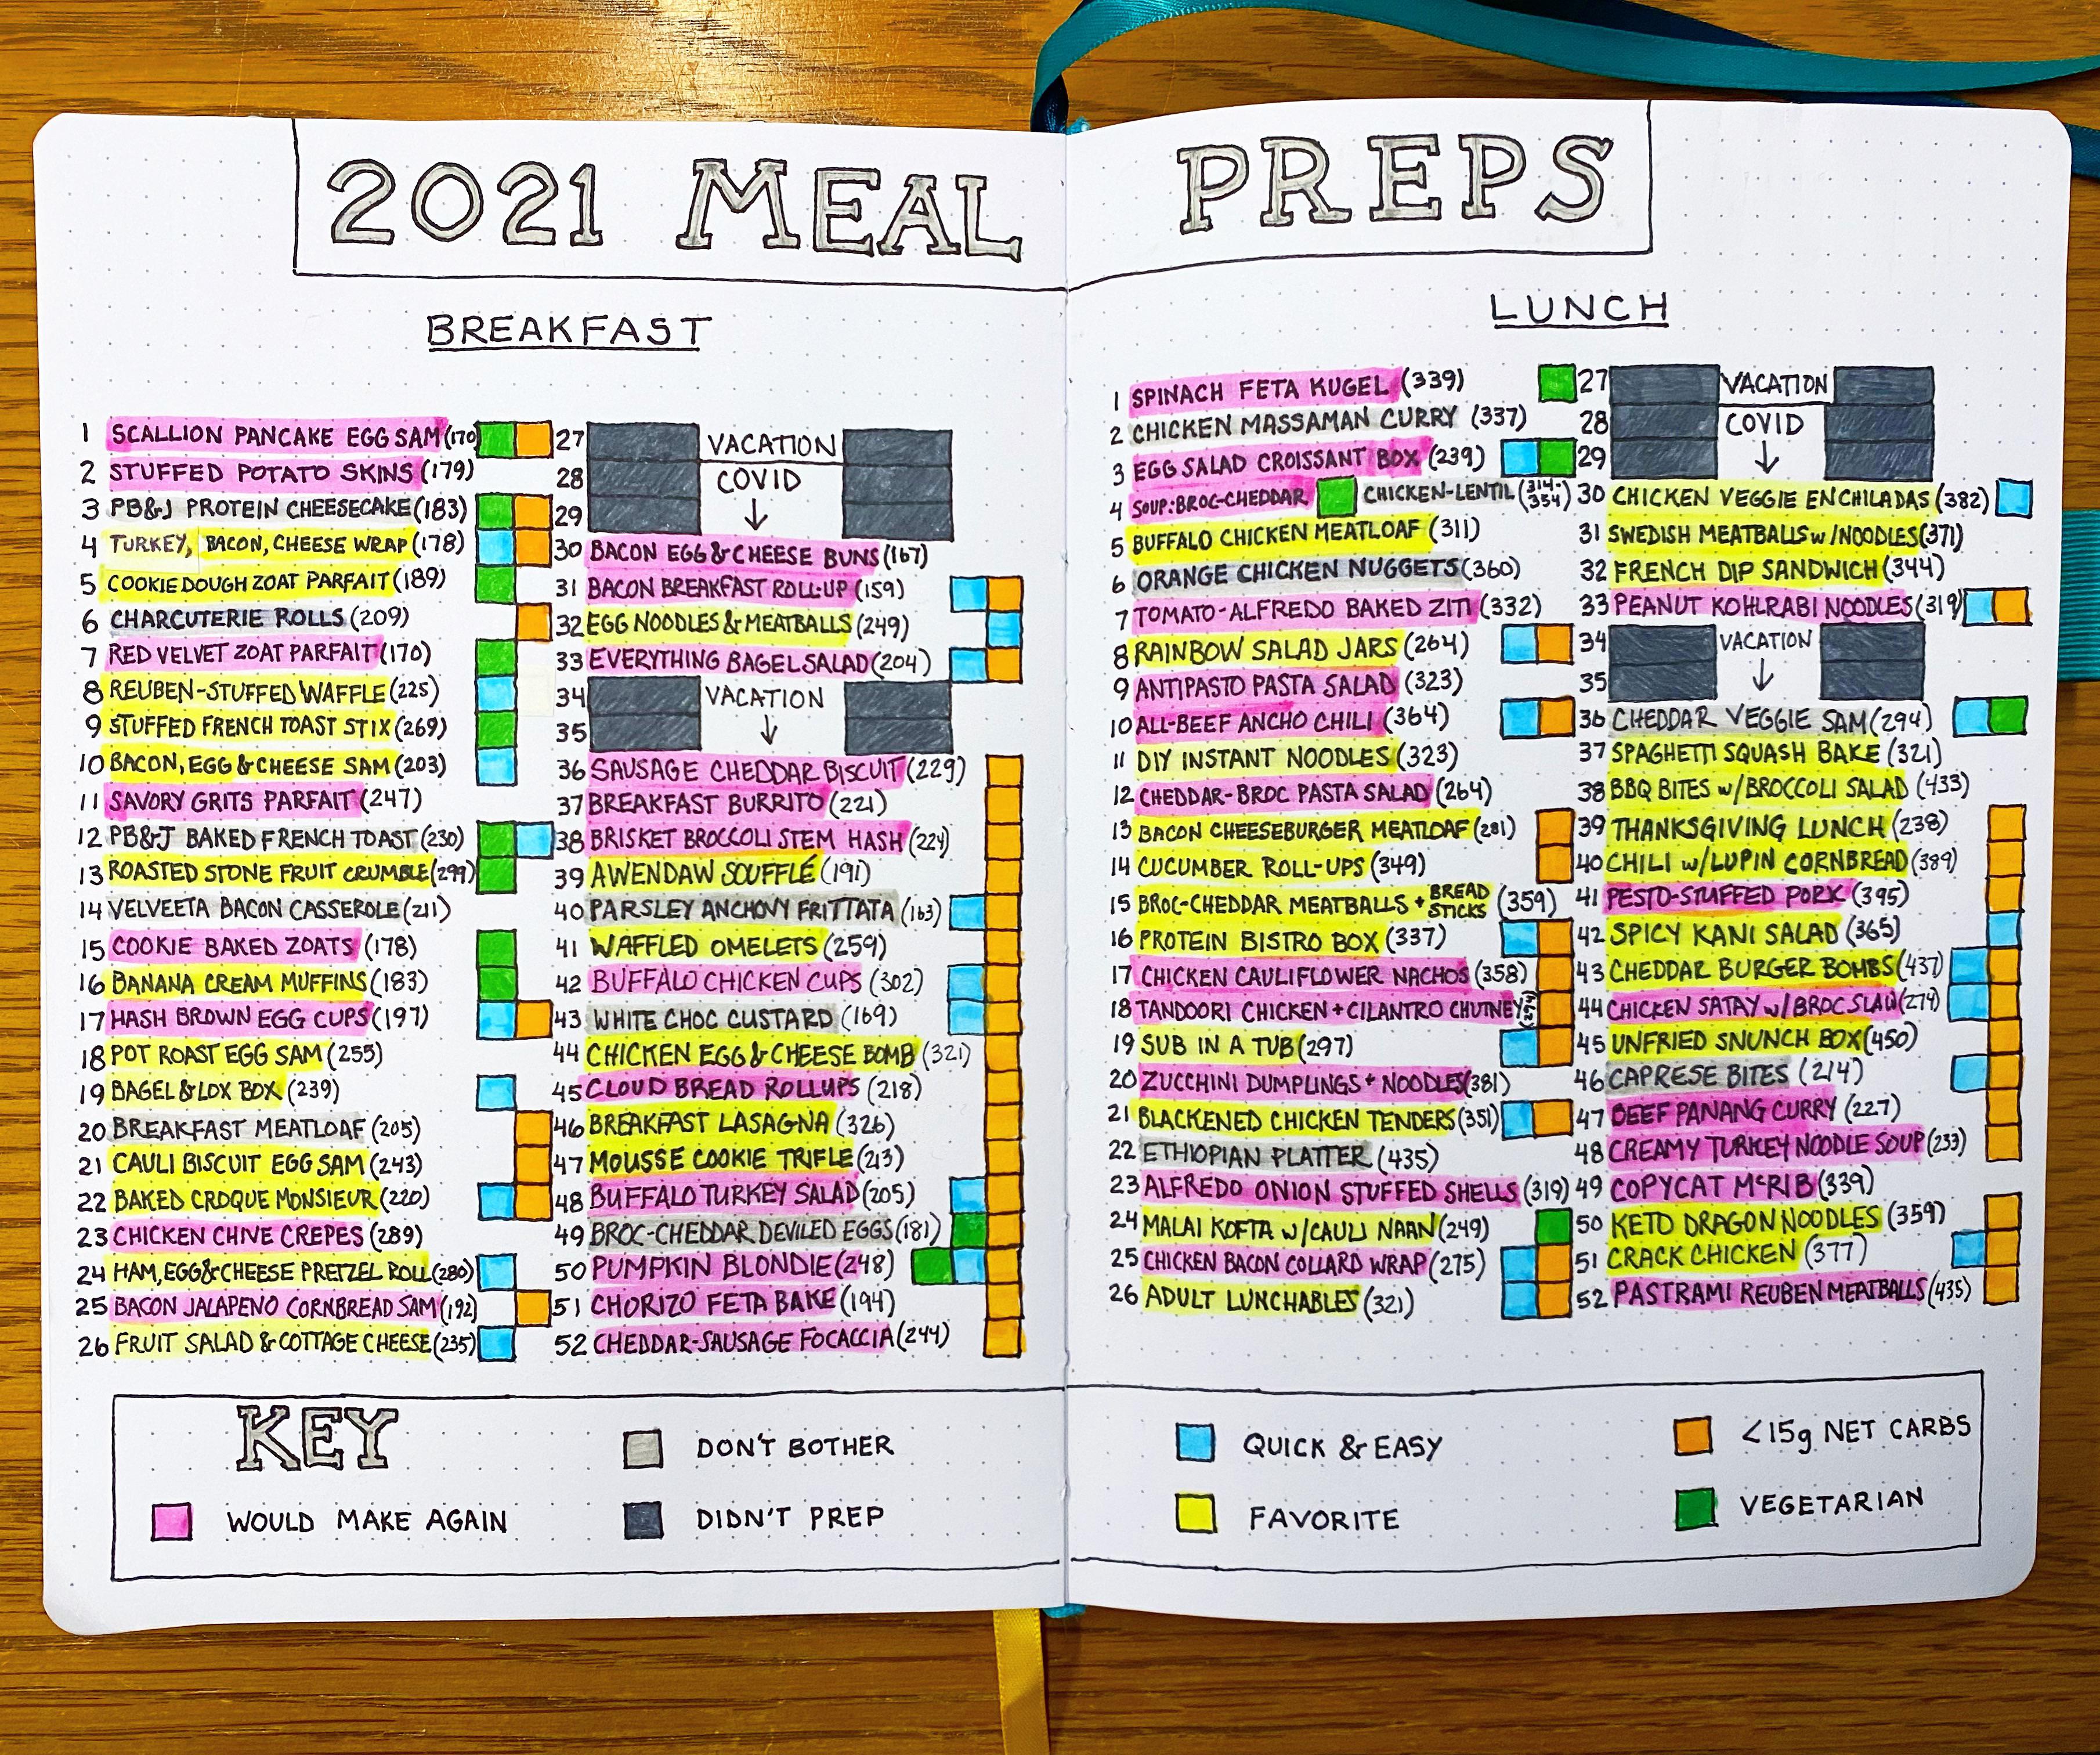 2021 MEAL PREPS
BREAKFAST
1 SCALLION PANCAKE EGG SAM (170
2 STUFFED POTATO SKINS (179)
3 PB&J PROTEIN CHEESECAKE (183)
4 TURKEY, BACON, CHEESE WRAP (178)
5 COOKIE DOUGH ZOAT PARFAIT (189)
6 CHARCUTERIE ROLLS (209)
7 RED VELVET ZOAT PARFAIT (170)
8 REUBEN-STUFFED WAFFLE (225)
9 STUFFED FRENCH TOAST STIX (269)
10 BACON, EGG & CHEESE SAM (203)
11 SAVORY GRITS PARFAIT (247)
12 PB&J BAKED FRENCH TOAST (230)
13 ROASTED STONE FRUIT CRUMBLE (299)
14 VELVEETA BACON CASSEROLE (211)
15 COOKIE BAKED ZOATS (178)
16 BANANA CREAM MUFFINS (183)
17 HASH BROWN EGG CUPS (197)
18 POT ROAST EGG SAM (255)
19 BAGEL & LOX BOX (239)
20 BREAKFAST MEATLOAF (205)
21 CAULI BISCUIT EGG SAM (243)
22 BAKED CROQUE MONSIEUR (220)
23 CHICKEN CHIVE CREPES (289)
24 HAM, EGG & CHEESE PRETZEL ROLL (280)
25 BACON JALAPENO CORNBREAD SAM (192)
26 FRUIT SALAD & COTTAGE CHEESE (235)
27 VACATION
28 COVID
29 ↓
30 BACON EGG & CHEESE BUNS (167)
31 BACON BREAKFAST ROLL-UP (159)
32 EGG NOODLES & MEATBALLS (249)
33 EVERYTHING BAGEL SALAD (204)
34 VACATION
35 ↓
36 SAUSAGE CHEDDAR BISCUIT (229)
37 BREAKFAST BURRITO (221)
38 BRISKET BROCCOLI STEM HASH (224)
39 AWENDAW SOUFFLÉ (191)
40 PARSLEY ANCHOVY FRITTATA (163)
41 WAFFLED OMELETS (259)
42 BUFFALO CHICKEN CUPS (302)
43 WHITE CHOC CUSTARD (169)
44 CHICKEN EGG & CHEESE BOMB (321)
45 CLOUD BREAD ROLLUPS (218)
46 BREAKFAST LASAGNA (326)
47 MOUSSE COOKIE TRIFLE (213)
48 BUFFALO TURKEY SALAD (205)
49 BROC-CHEDDAR DEVILED EGGS (181)
50 PUMPKIN BLONDIE (248)
51 CHORIZO FETA BAKE (194)
52 CHEDDAR-SAUSAGE FOCACCIA (244)
LUNCH
1 SPINACH FETA KUGEL (339)
2 CHICKEN MASSAMAN CURRY (337)
3 EGG SALAD CROISSANT BOX (239)
4 SOUP: BROC-CHEDDAR CHICKEN-LENTIL (314-354)
5 BUFFALO CHICKEN MEATLOAF (311)
6 ORANGE CHICKEN NUGGETS (360)
7 TOMATO-ALFREDO BAKED ZITI (332)
8 RAINBOW SALAD JARS (264)
9 ANTIPASTO PASTA SALAD (323)
10 ALL-BEEF ANCHO CHILI (364)
11 DIY INSTANT NOODLES (323)
12 CHEDDAR-BROC PASTA SALAD (264)
13 BACON CHEESEBURGER MEATLOAF (281)
14 CUCUMBER ROLL-UPS (349)
15 BROC-CHEDDAR MEATBALLS + BREAD STICKS (359)
16 PROTEIN BISTRO BOX (337)
17 CHICKEN CAULIFLOWER NACHOS (358)
18 TANDOORI CHICKEN + CILANTRO CHUTNEY
19 SUB IN A TUB (297)
20 ZUCCHINI DUMPLINGS + NOODLES (381)
21 BLACKENED CHICKEN TENDERS (351)
22 ETHIOPIAN PLATTER (435)
23 ALFREDO ONION STUFFED SHELLS (319)
24 MALAI KOFTA w/CAULI NAAN (249)
25 CHICKEN BACON COLLARD WRAP (275)
26 ADULT LUNCHABLES (321)
27 VACATION
28 COVID
29 ↓
30 CHICKEN VEGGIE ENCHILADAS (382)
31 SWEDISH MEATBALLS w/NOODLES (371)
32 FRENCH DIP SANDWICH (344)
33 PEANUT KOHLRABI NOODLES (319)
34 VACATION
35 ↓
36 CHEDDAR VEGGIE SAM (294)
37 SPAGHETTI SQUASH BAKE (321)
38 BBQ BITES w/BROCCOLI SALAD (433)
39 THANKSGIVING LUNCH (238)
40 CHILI w/LUPIN CORNBREAD (389)
41 PESTO-STUFFED PORK (395)
42 SPICY KANI SALAD (365)
43 CHEDDAR BURGER BOMBS (437)
44 CHICKEN SATAY w/BROC SLAW (274)
45 UNFRIED SNUNCH BOX (450)
46 CAPRESE BITES (214)
47 BEEF PANANG CURRY (227)
48 CREAMY TURKEY NOODLE SOUP (233)
49 COPYCAT McRIB (339)
50 KETO DRAGON NOODLES (359)
51 CRACK CHICKEN (377)
52 PASTRAMI REUBEN MEATBALLS (435)
KEY
WOULD MAKE AGAIN
DON'T BOTHER
DIDN'T PREP
QUICK & EASY
FAVORITE
<15g NET CARBS
VEGETARIAN